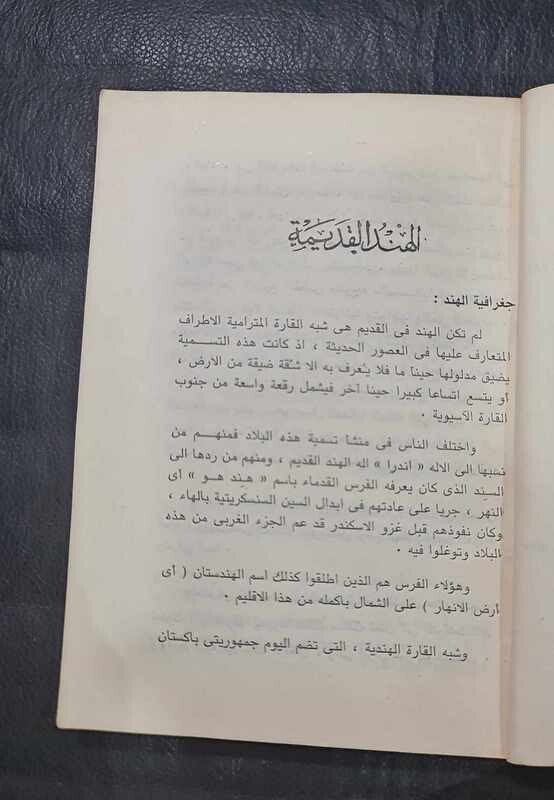 الهندُ القَديمَة
جغرافية الهند :
لم تكن الهند فى القديم هى شبه القارة المترامية الاطراف
المتعارف عليها فى العصور الحديثة ، اذ كانت هذه التسـمية
يضيق مدلولها حيناً ما فلا يُعرف به الا شقّة ضيقة من الارض ،
أو يتسع اتساعا كبيرا حينا آخر فيشمل رقعة واسعة من جنوب
القارة الآسيوية .
واختلف الناس فى منشأ تسمية هذه البلاد فمنهـم من
نسبها الى الاله « اندرا » اله الهند القديم ، ومنهم من ردها الى
السند الذى كان يعرفه الفرس القدماء باسم « هـند هـو » أى
النهر ، جريا على عادتهم فى ابدال السين السنسكريتية بالهاء ،
وكان نفوذهم قبل غزو الاسكندر قد عم الجزء الغربى من هذه
البلاد وتوغلوا فيه .
وهؤلاء الفرس هم الذين اطلقوا كذلك اسم الهندستان ( أى
أرض الانهار ) على الشمال بأكمله من هذا الاقليم .
وشبه القارة الهندية ، التى تضم اليوم جمهوريتى باكستان